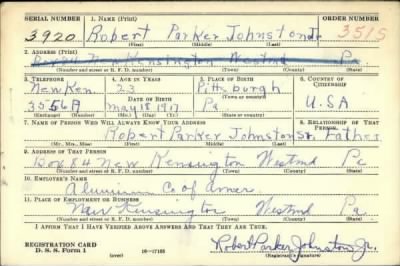 SERIAL NUMBER 1. NAME (Print) ORDER NUMBER
3920 Robert Parker Johnston Jr. 3515
(First) (Middle) (Last)
2. ADDRESS (Print)
Box 84 New Kensington Westmd Pa.
(Number and street or R. F. D. number) (Town) (County) (State)
3. TELEPHONE 4. AGE IN YEARS 5. PLACE OF BIRTH 6. COUNTRY OF CITIZENSHIP
New Ken. 23 Pittsburgh
DATE OF BIRTH (Town or county)
3556A May 18 1917 Pa USA
(Mo.) (Day) (Yr.) (State or country)
7. NAME OF PERSON WHO WILL ALWAYS KNOW YOUR ADDRESS 8. RELATIONSHIP OF THAT PERSON
Robert Parker Johnston Sr. Father
(Mr., Mrs., Miss) (First) (Middle) (Last)
9. ADDRESS OF THAT PERSON
Box 84 New Kensington Westmd Pa
(Number and street or R. F. D. number) (Town) (County) (State)
10. EMPLOYER'S NAME
Aluminum Co of Amer.
11. PLACE OF EMPLOYMENT OR BUSINESS
New Kensington Westmd Pa.
(Number and street or R. F. D. number) (Town) (County) (State)
I AFFIRM THAT I HAVE VERIFIED ABOVE ANSWERS AND THAT THEY ARE TRUE.
REGISTRATION CARD
D. S. S. Form 1 16—17105 Robert Parker Johnston Jr.
(Registrant's signature)